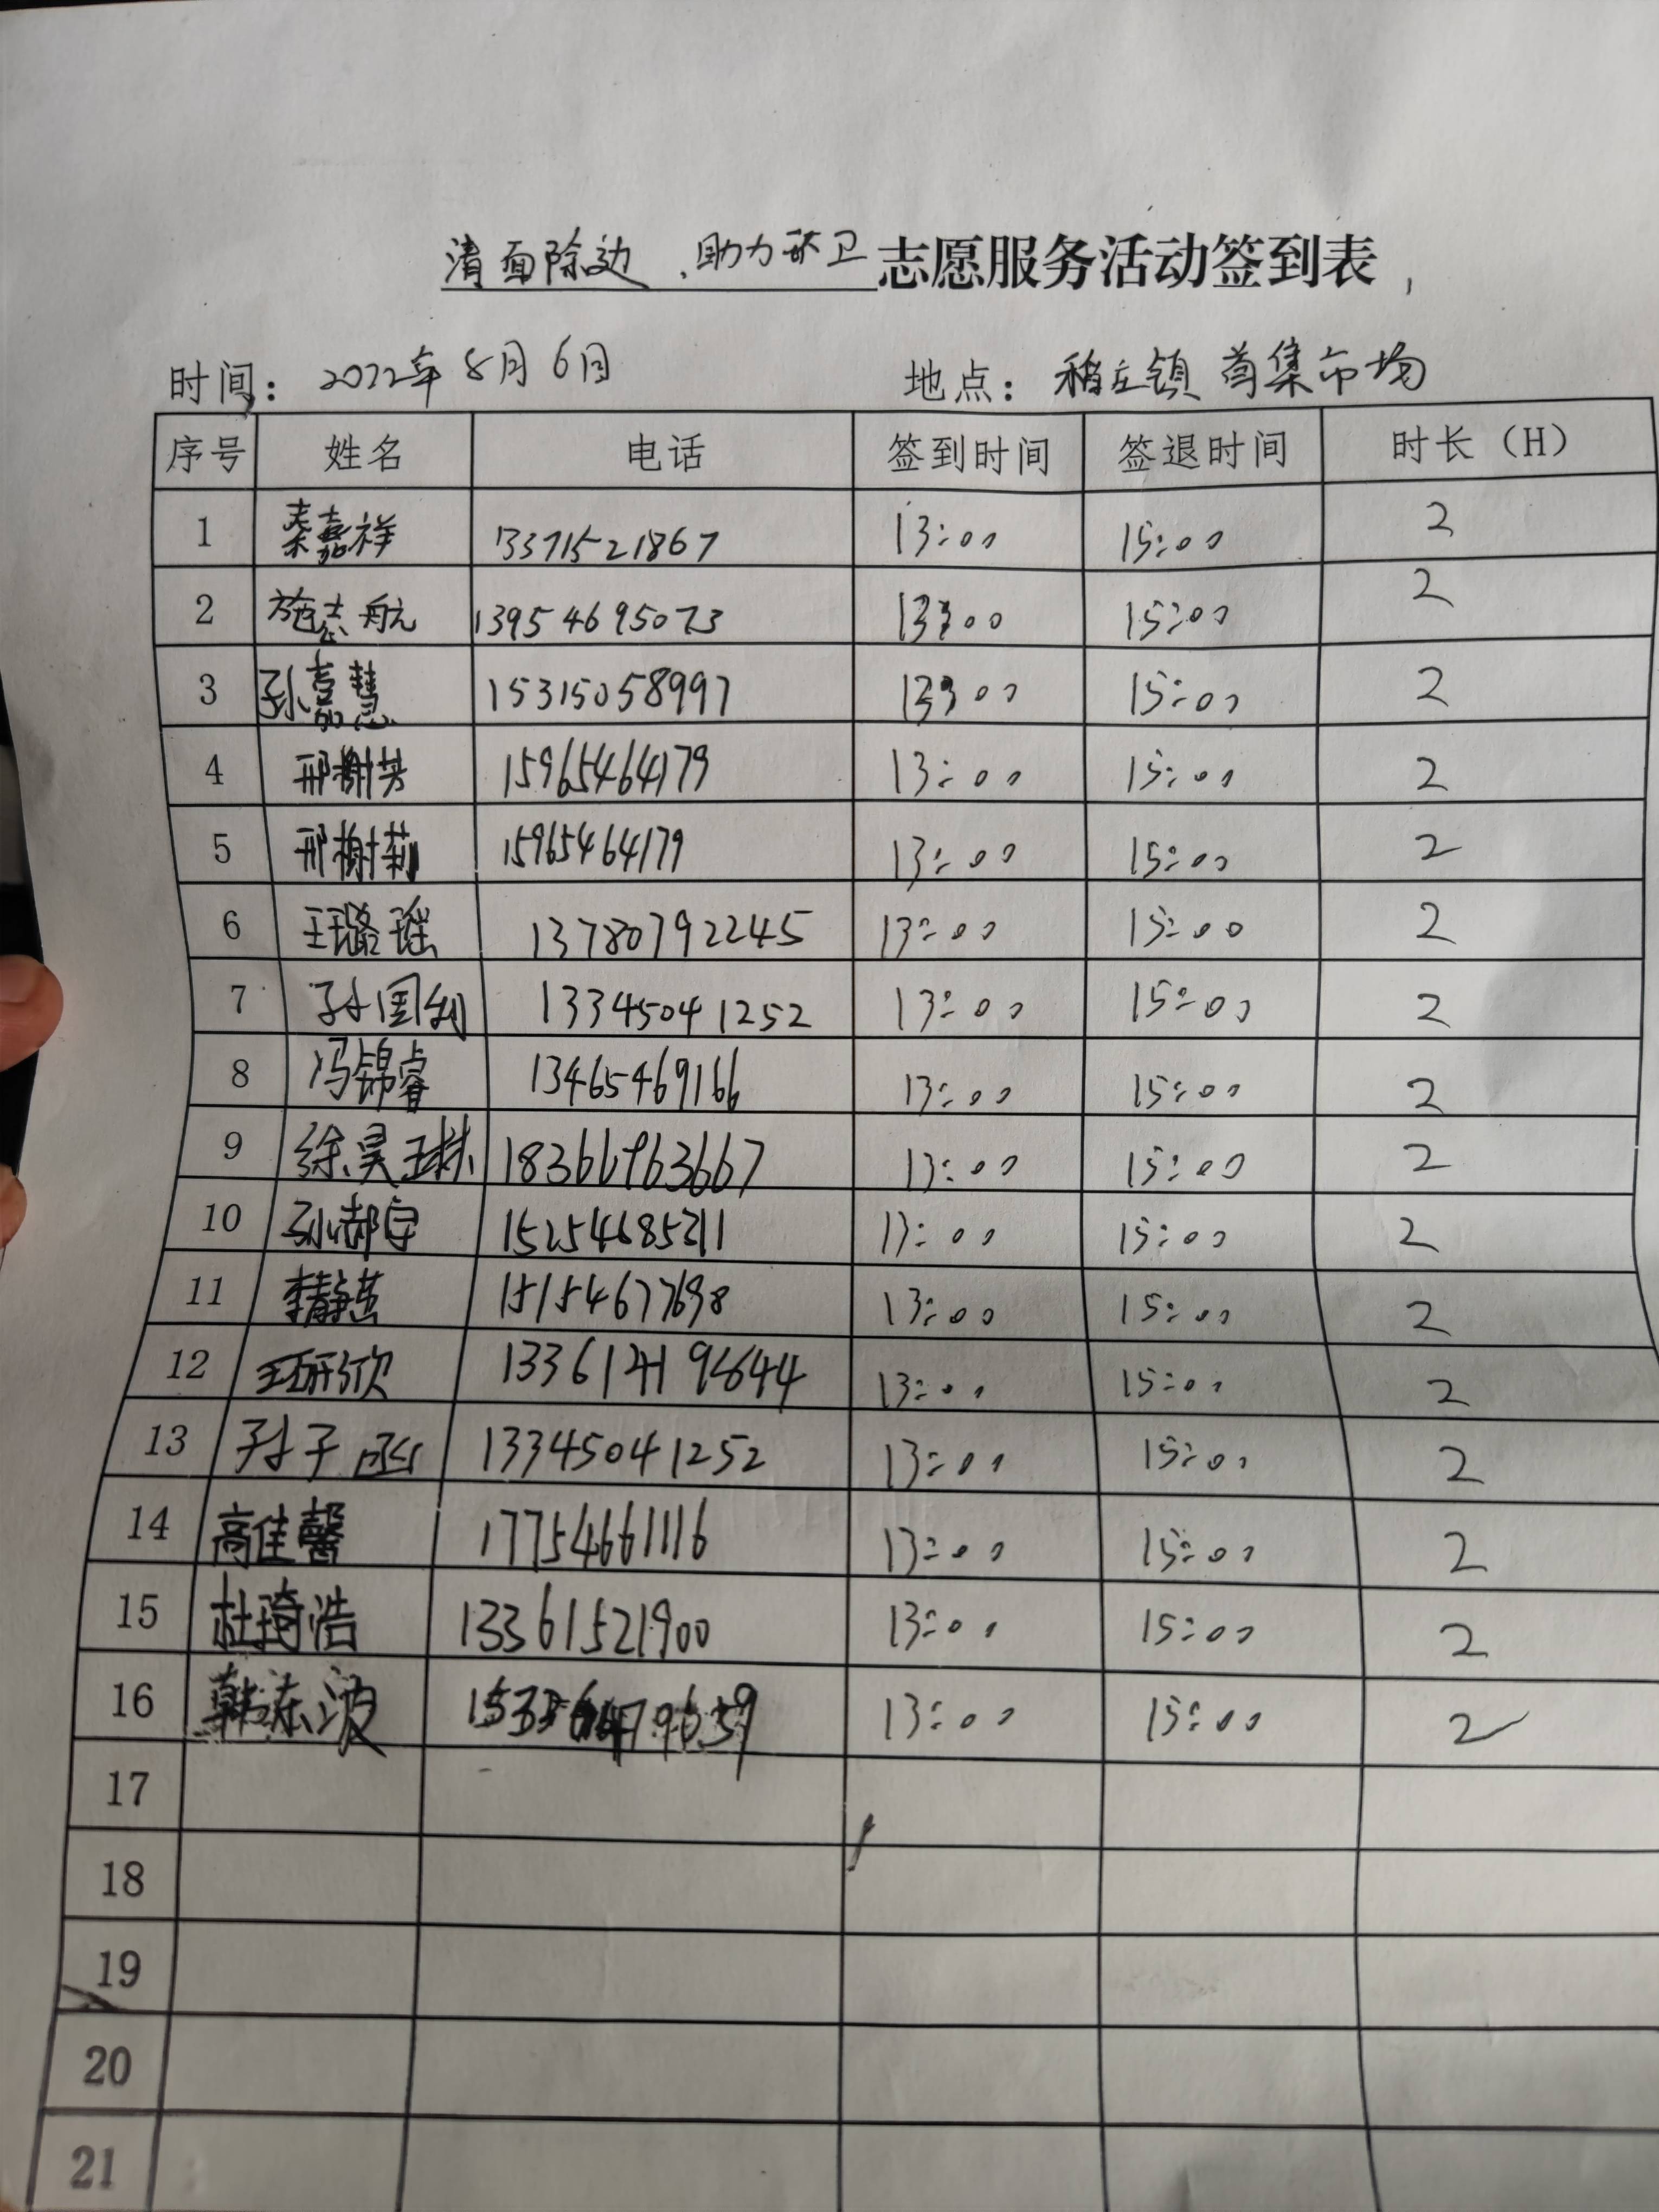 清面除边、助力环卫志愿服务活动签到表
时间：2022年8月6日 地点：稻庄镇 集市场
序号 姓名 电话 签到时间 签退时间 时长（H）
1 秦嘉祥 13371521867 13:00 15:00 2
2 施志航 13954695073 13:00 15:00 2
3 孙嘉慧 15315058997 13:00 15:00 2
4 邢榭芸 15965464179 13:00 15:00 2
5 邢榭莉 15965464179 13:00 15:00 2
6 王璐瑶 13780792245 13:00 15:00 2
7 孙国钊 13345041252 13:00 15:00 2
8 冯锦睿 13465469166 13:00 15:00 2
9 徐昊琳 18366963667 13:00 15:00 2
10 孙郝宇 15254685211 13:00 15:00 2
11 李静芸 15154677698 13:00 15:00 2
12 王研欣 13:00 15:00 2
13 孙子函 13345041252 13:00 15:00 2
14 高佳馨 17754661116 13:00 15:00 2
15 杜琦浩 13361521900 13:00 15:00 2
16 韩东波 13:00 15:00 2
17
18
19
20
21